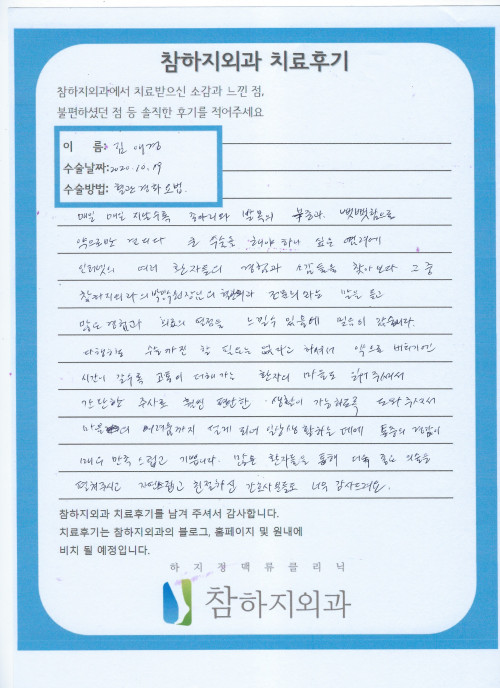 참하지외과 치료후기
참하지외과에서 치료받으신 소감과 느낀 점,
불편하셨던 점 등 솔직한 후기를 적어주세요
이 름: 김애경
수술날짜: 2020.10.19
수술방법: 혈관경화요법.
매일 매일 지날수록 종아리와 발목의 붓종과 뻣뻣함으로
약으로만 견디다 큰 수술을 해야 하나 싶은 염려에
인터넷의 여러 환자들의 경험과 소감들을 찾아보다 그 중
참하지외과의 박 원장님의 전문의라는 말을 듣고
많은 경험과 의료의 열정을 느낄수 있음에 믿음이 갔습니다.
다행히도 수술까진 할 필요는 없다고 하셔서 약으로 버티기엔
시간이 갈수록 고통이 더해가는 환자의 마음도 주셔서
간단한 주사로 훨씬 편안한 생활이 가능하도록 도와주셔서
마음의 어려움까지 쉽게 되어 일상생활하는 데에 통증의 경감이
매우 만족스럽고 기쁩니다. 많은 환자들을 통해 더욱 좋은 의술을
펼쳐주시고 자연스럽고 친절하신 간호사분들도 너무 감사드려요.
참하지외과 치료후기를 남겨 주셔서 감사합니다.
치료후기는 참하지외과의 블로그, 홈페이지 및 원내에
비치 될 예정입니다.
하지정맥류클리닉
참하지외과